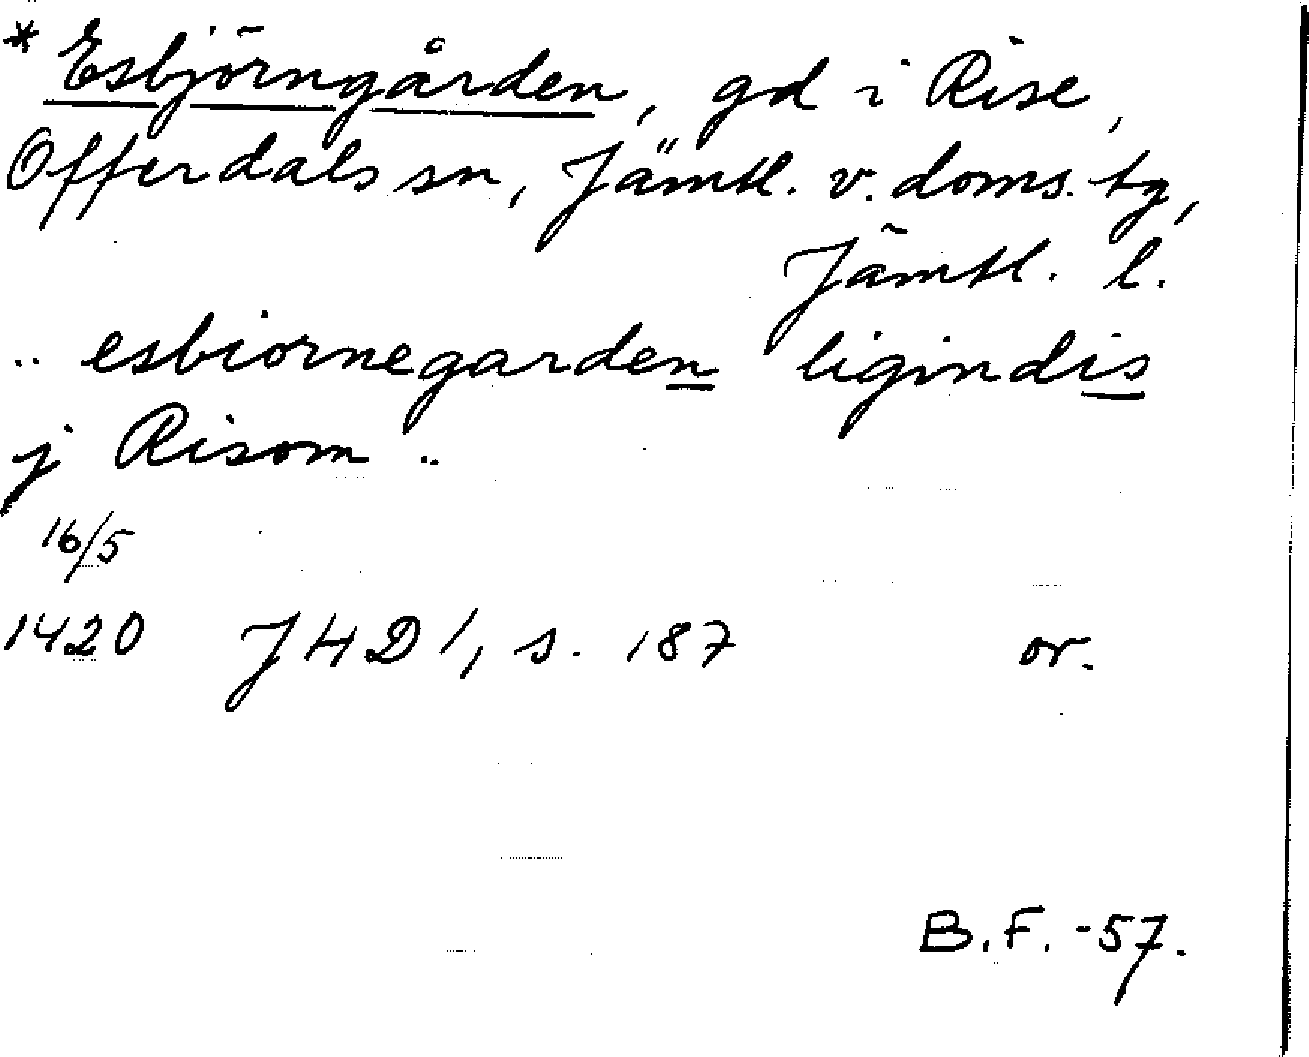 * Esbjörngården, gd i Rise,
Offerdals sn, Jämtl. v. doms. tg,
Jämtl. l.
.. esbiornegarden ligindis
j Risom ..
16/5
1420 JHD 1, s. 187 or.
B.F. -57.